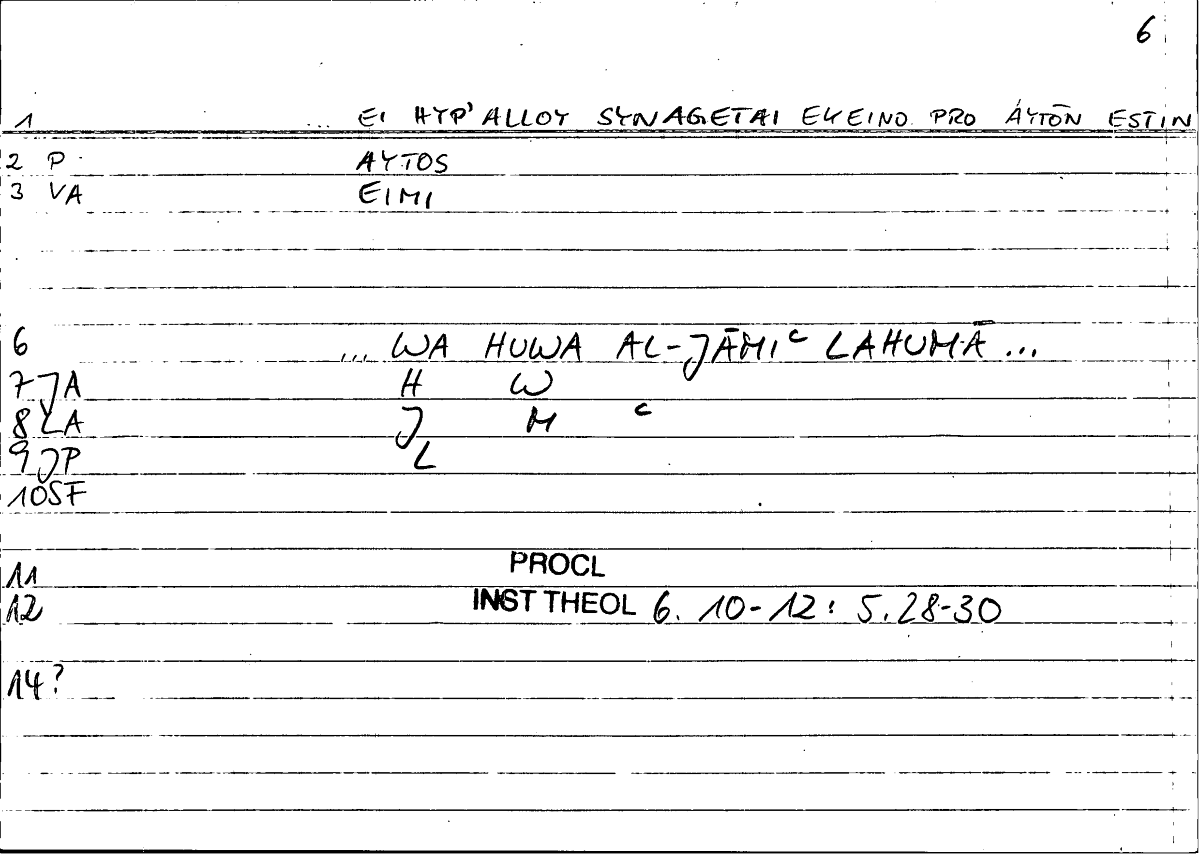 6
1 ... EI HYP'ALLOY SYNAGETAI EKEINO PRO AYTŌN ESTIN
2 P. AYTOS
3 VA EIMI
6 ... WA HUWA AL-JĀMIᶜ LAHUMĀ ...
7 JA H W
8 LA J M ᶜ
9 JP L
10 SF
11 PROCL
12 INST THEOL 6. 10-12: 5.28-30
14?